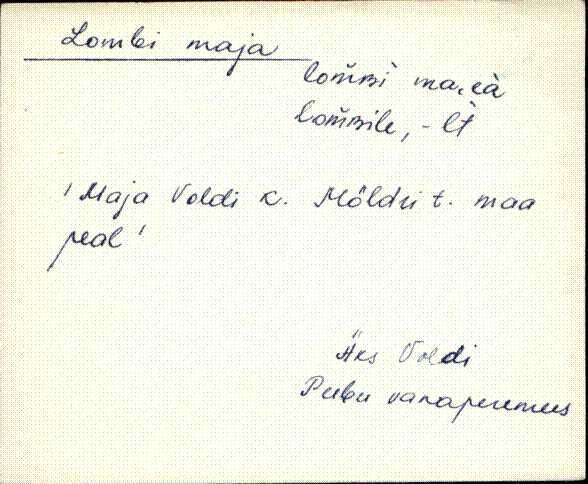 Lombi maja
lom̆ʙì ma,eà
lom̆ʙile, -lt̀
' Maja Voldi k. Möldri t. maa
peal '
Äks Voldi
Peebu vanaperemees